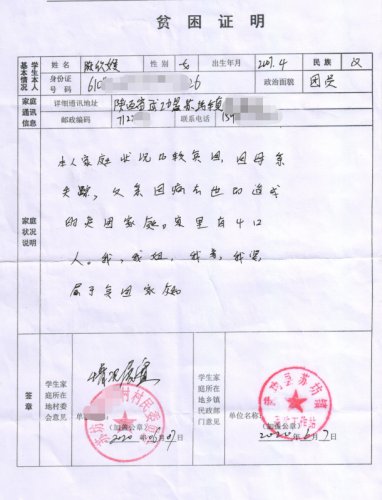 贫困证明
学生本人基本情况 姓名 殷欣媛 性别 女 出生年月 2001.4 民族 汉
身份证号 610 26 政治面貌 团员
家庭通讯信息 详细通讯地址 陕西省武功县苏坊镇
邮政编码 712 联系电话 15
家庭状况说明
本人家庭状况比较贫困,因母亲
失踪,父亲因病去世而造成
的贫困家庭。家里有4口
人。我,我姐,我爷,我婆
属于贫困家庭
签章
学生家庭所在地村委会意见
情况属实
村村民委员会
单
(加盖公章)
2020年06月07日
学生家庭所在地乡镇民政部门意见
武功县苏坊镇
单位名称
(加盖公章)
2020年6月7日